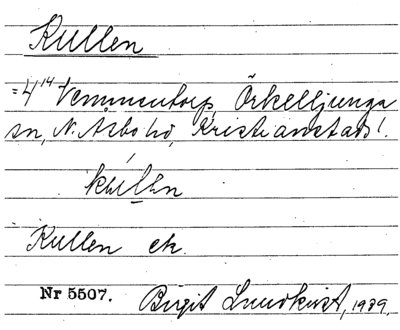 Kullen
=4¹⁴ Vemmentorp, Örkelljunga
sn, N. Åsbo hd, Kristianstads l.
kúllen
Kullen ek.
Nr 5507. Birgit Lundkvist, 1939.